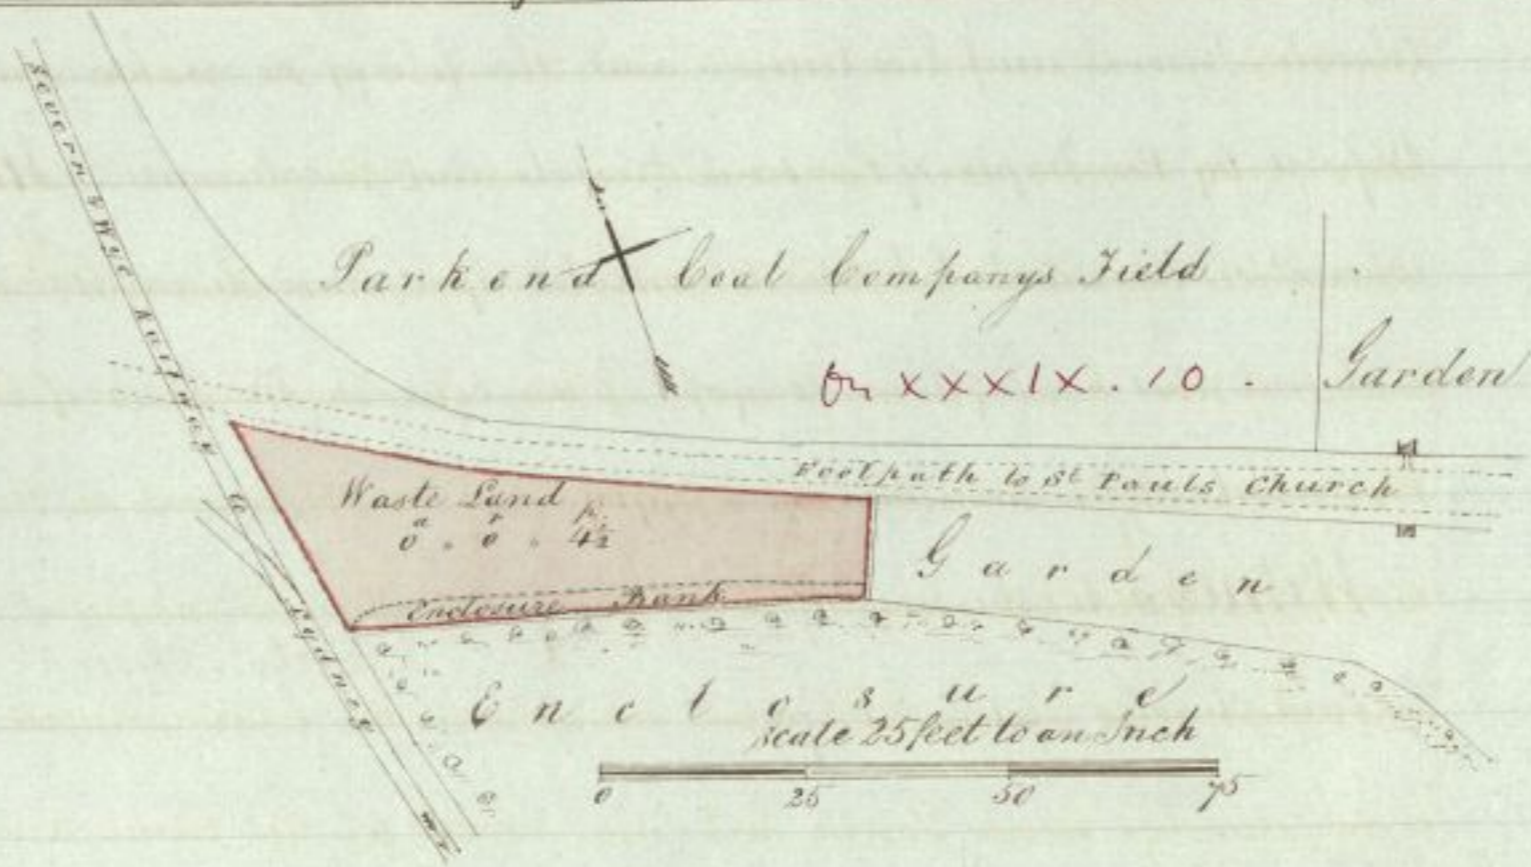 Severn & Wye Railway
Parkend Coal Companys Field
On XXXIX. 10.
Garden
Footpath to St Pauls Church
Waste Land
a r p
0 . 0 . 4½
Garden
Enclosure Bank
to Lydney
Enclosure
Scale 25 feet to an Inch
0 25 50 75